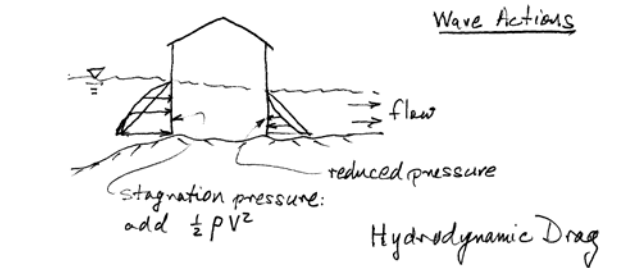 Wave Actions
flow
reduced pressure
stagnation pressure:
add ½ ρV²
Hydrodynamic Drag